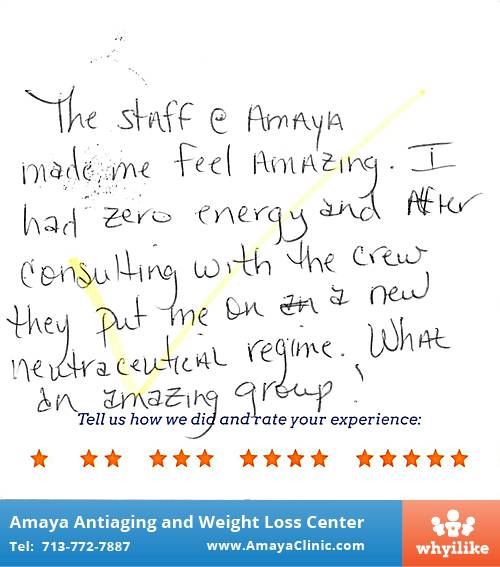 The staff @ Amaya
made me feel Amazing. I
had zero energy and After
consulting with the crew
they put me on an a new
neutraceutical regime. What
an amazing group!
Tell us how we did and rate your experience:
Amaya Antiaging and Weight Loss Center
Tel: 713-772-7887 www.AmayaClinic.com
whyilike